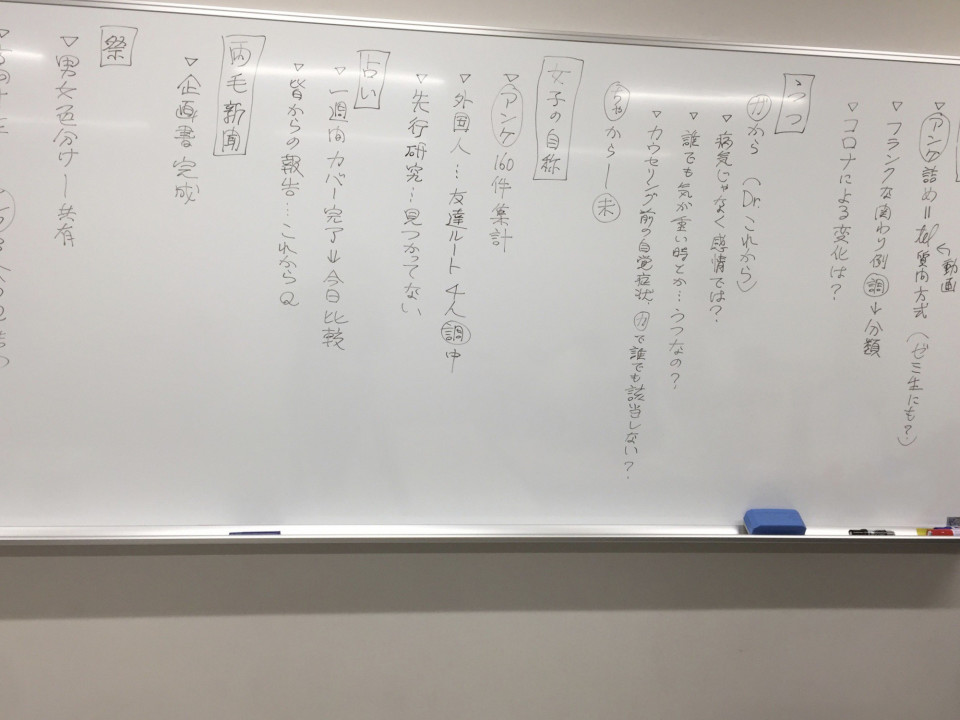 ▽アンケ詰め＝tel質問方式（ゼミ生にも？）
↑動画
▽フランクな関わり例 調→分類
▽コロナによる変化は？
うつ
ガから（Dr.これから）
▽病気じゃなく感情では？
▽誰でも気が重い時とか…うつなの？
▽カウセリング前の自覚症状、ガで誰でも該当しない？
から－未
女子の自称
▽アンケ160件集計
▽外国人…友達ルート4人 調中
▽先行研究…見つかってない
占い
▽一週間カバー完了→今日比較
▽皆からの報告…これからQ
両毛新聞
▽企画書完成
祭
▽男女区分けー共有